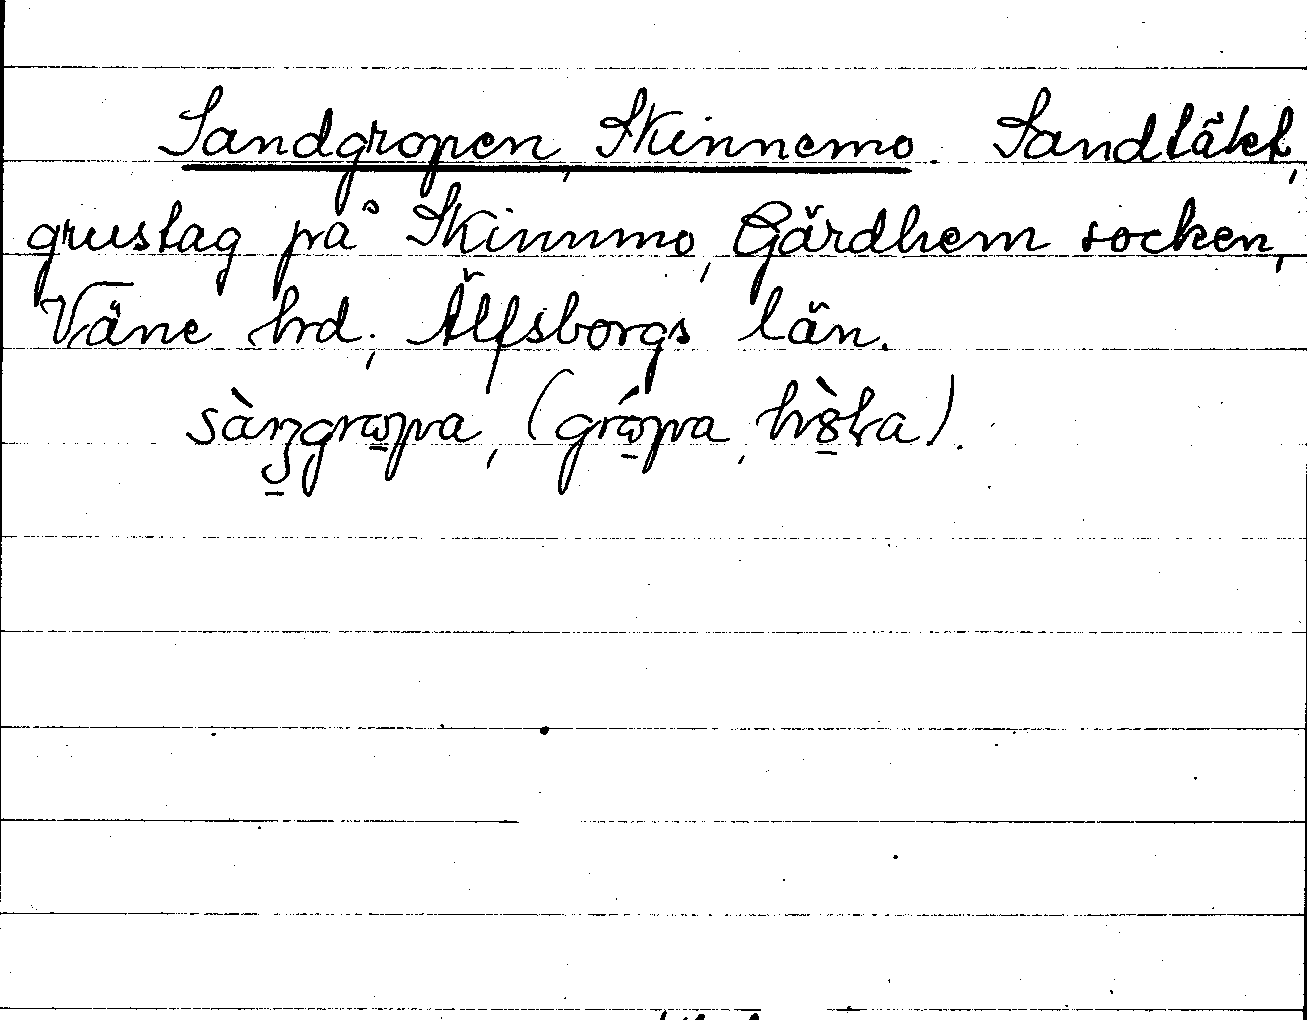 Sandgropen, Skinnemo. Sandtäkt,
grustag på Skinnmo, Gärdhem socken,
Väne hrd, Älfsborgs län.
sàn̠gro̠pa, (gró̠pa, hò̠la).